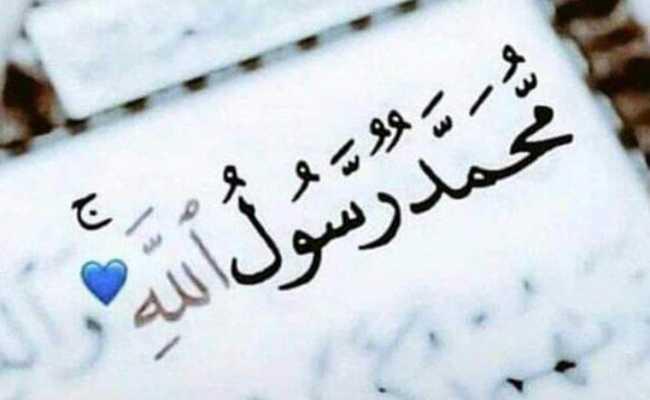 مُّحَمَّدٌ رَّسُولُ ٱللَّهِ ۚ